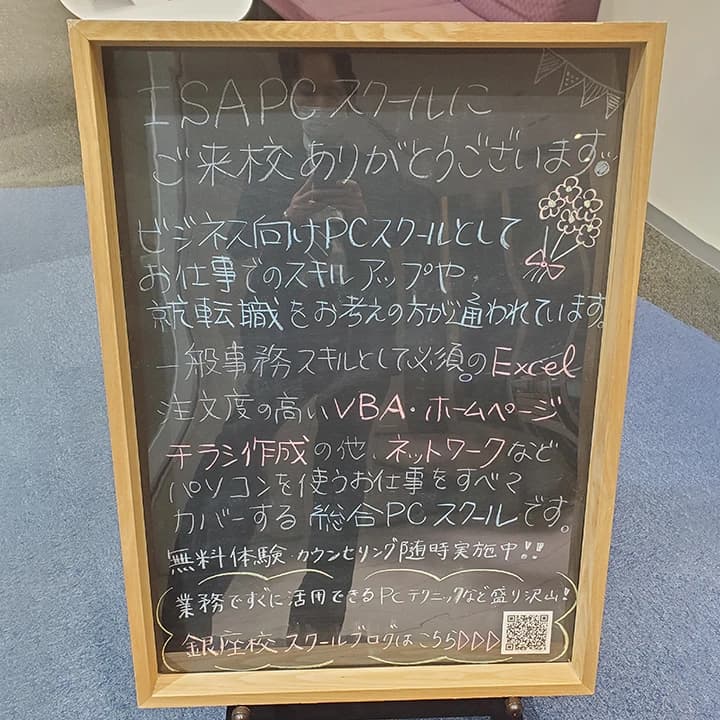 ISA PCスクールに
ご来校ありがとうございます。
ビジネス向けPCスクールとして
お仕事でのスキルアップや
就転職をお考えの方が通われています。
一般事務スキルとして必須のExcel
注文度の高いVBA・ホームページ
チラシ作成の他、ネットワークなど
パソコンを使うお仕事をすべて
カバーする総合PCスクールです。
無料体験・カウンセリング随時実施中!!
業務ですぐに活用できるPCテクニックなど盛り沢山!
銀座校スクールブログはこちら▷▷▷